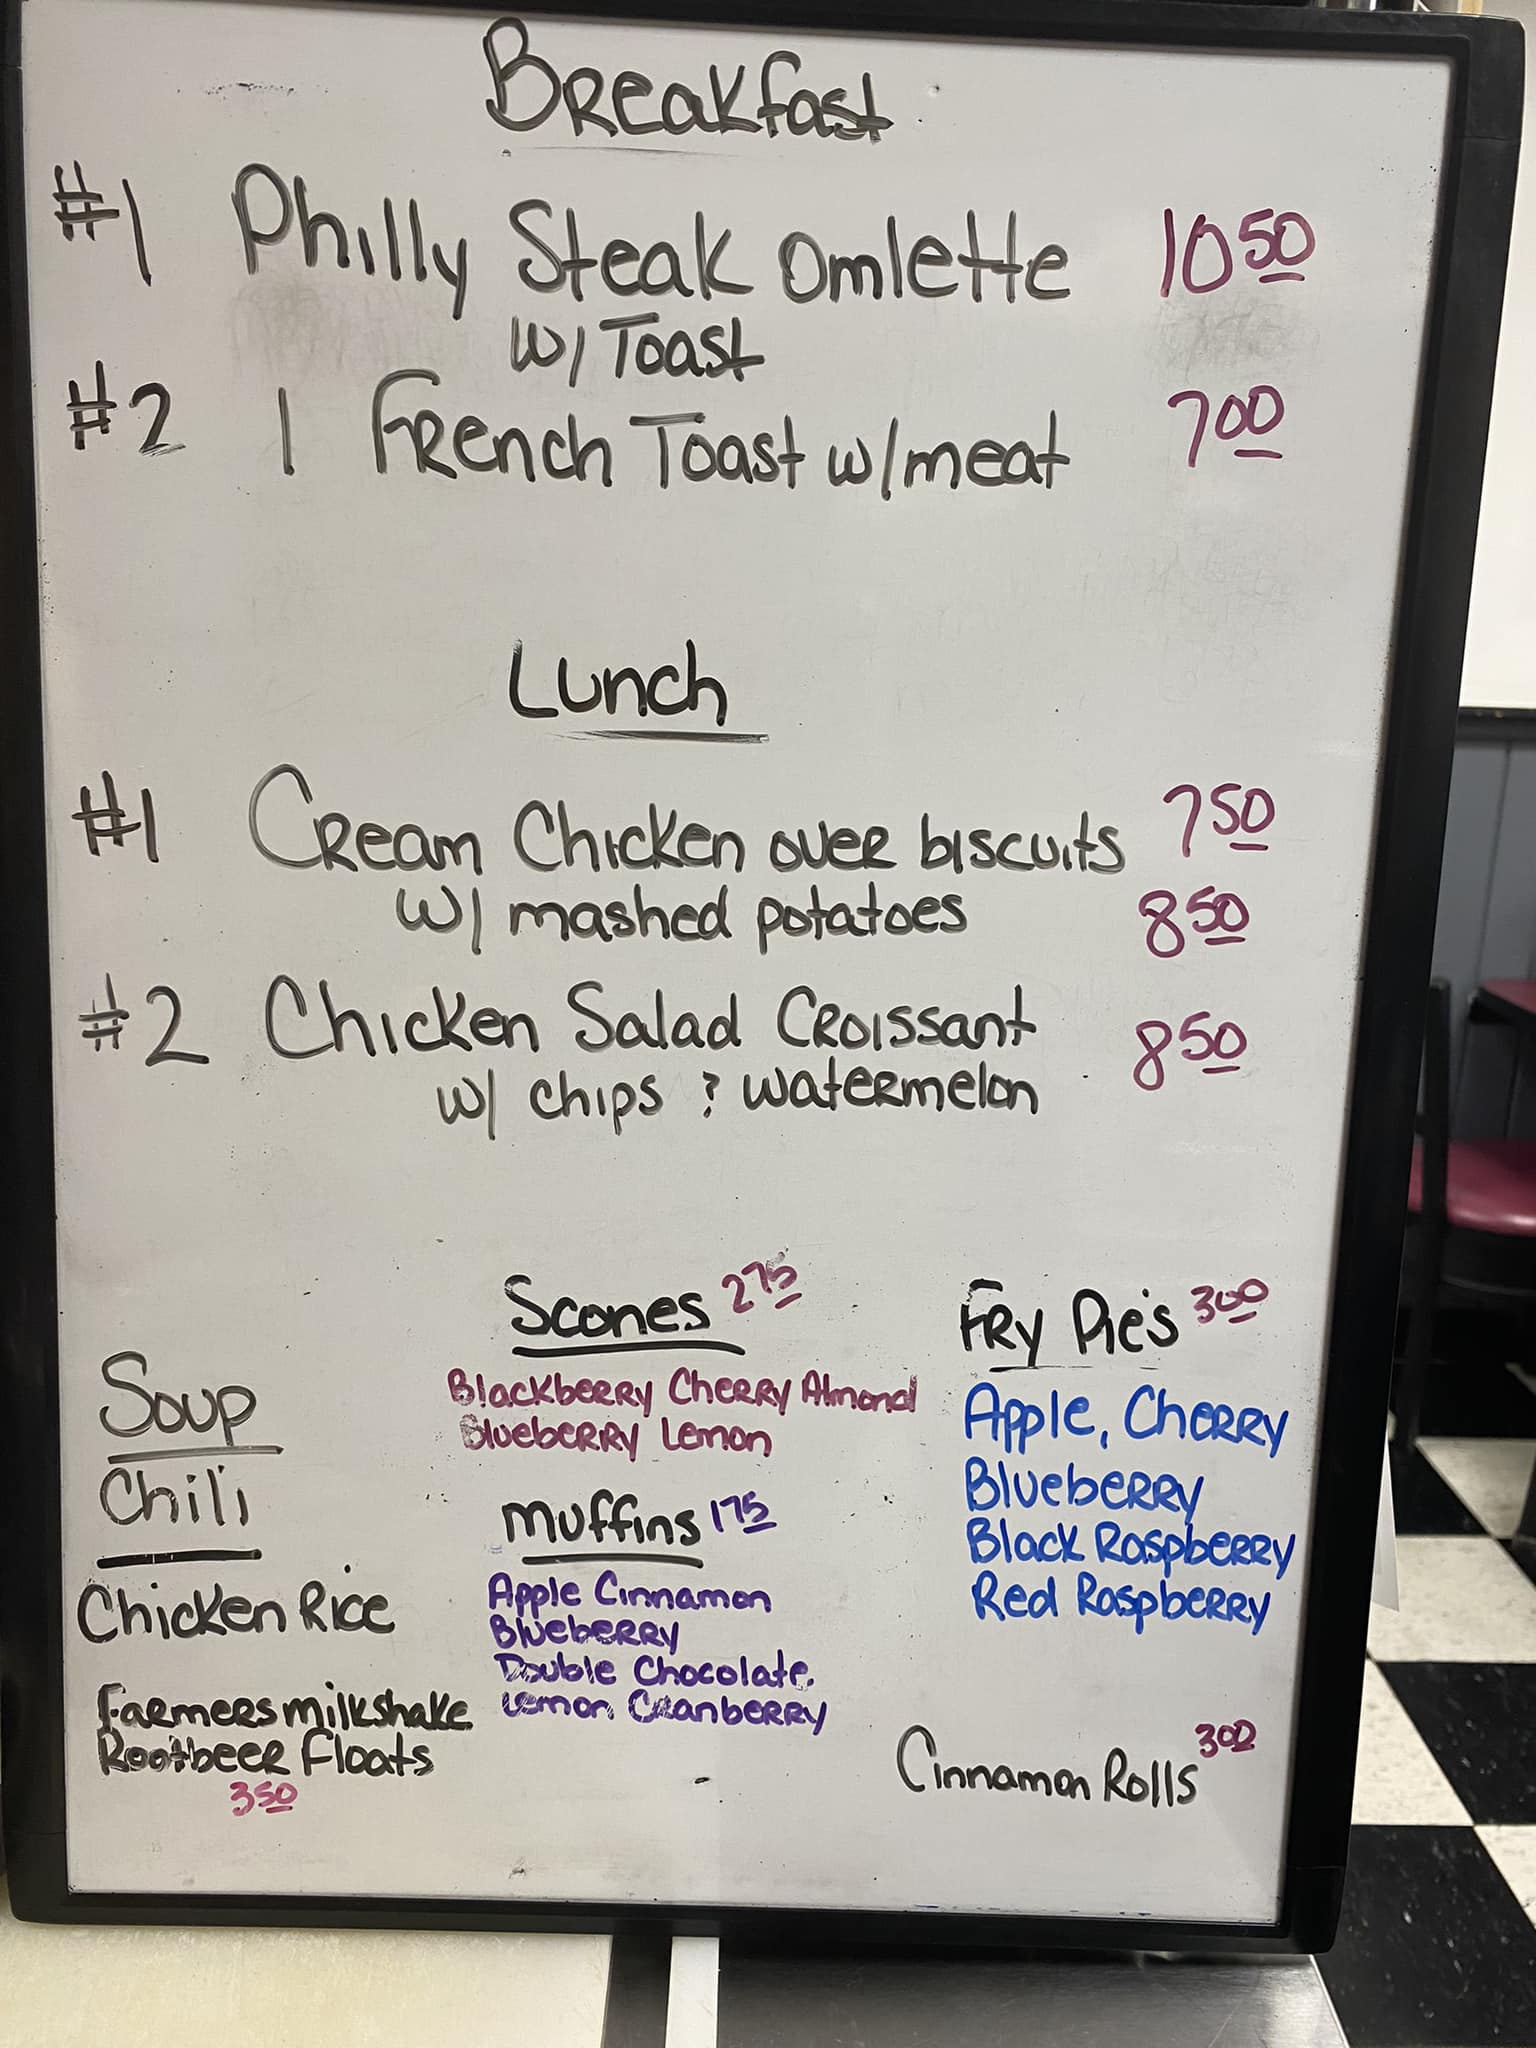 Breakfast
#1 Philly Steak Omlette 10 50
w/ Toast
#2 1 French Toast w/meat 7 00
Lunch
#1 Cream Chicken over biscuits 7 50
w/ mashed potatoes 8 50
#2 Chicken Salad Croissant 8 50
w/ chips & watermelon
Soup
Chili
Chicken Rice
Farmers milkshake
Rootbeer Floats
3 50
Scones 2 75
Blackberry Cherry Almond
Blueberry Lemon
Muffins 1 75
Apple Cinnamon
Blueberry
Double Chocolate
Lemon Cranberry
Fry Pie's 3 00
Apple, Cherry
Blueberry
Black Raspberry
Red Raspberry
Cinnamon Rolls 3 00